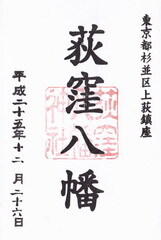 東京都杉並区上荻鎮座
荻窪八幡
平成二十五年十二月二十六日
荻窪八幡神社